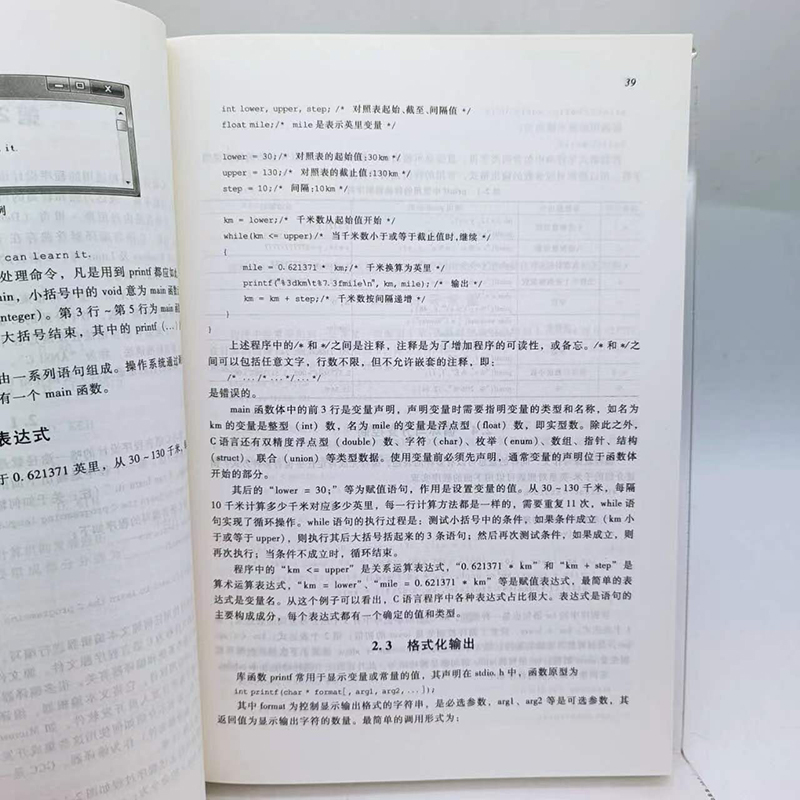 it.
例
can learn it.
处理命令,凡是用到 printf 都应如此
ain,小括号中的 void 意为 main 函数
integer)。第 3 行~第 5 行为 main 函
大括号结束,其中的 printf (...)
由一系列语句组成。操作系统通过
有一个 main 函数。
表达式
于 0.621371 英里,从 30~130 千米,
39
int lower, upper, step; /* 对照表起始、截至、间隔值 */
float mile;/* mile是表示英里变量 */
lower = 30;/* 对照表的起始值:30km */
upper = 130;/* 对照表的截止值:130km */
step = 10;/* 间隔:10km */
km = lower;/* 千米数从起始值开始 */
while(km <= upper)/* 当千米数小于或等于截止值时,继续 */
{
mile = 0.621371 * km;/* 千米换算为英里 */
printf("%3dkm\t%7.3fmile\n", km, mile); /* 输出 */
km = km + step;/* 千米数按间隔递增 */
}
}
上述程序中的/* 和 */之间是注释,注释是为了增加程序的可读性,或备忘。/* 和 */之
间可以包括任意文字,行数不限,但不允许嵌套的注释,即:
/* .../* ...*/...*/
是错误的。
main 函数体中的前 3 行是变量声明,声明变量时需要指明变量的类型和名称,如名为
km 的变量是整型(int)数,名为 mile 的变量是浮点型(float)数,即实型数。除此之外,
C 语言还有双精度浮点型(double)数、字符(char)、枚举(enum)、数组、指针、结构
(struct)、联合(union)等类型数据。使用变量前必须先声明,通常变量的声明位于函数体
开始的部分。
其后的“lower = 30;”等为赋值语句,作用是设置变量的值。从 30~130 千米,每隔
10 千米计算多少千米对应多少英里,每一行计算方法都是一样的,需要重复 11 次,while 语
句实现了循环操作。while 语句的执行过程是:测试小括号中的条件,如果条件成立(km 小
于或等于 upper),则执行其后大括号括起来的 3 条语句;然后再次测试条件,如果成立,则
再次执行;当条件不成立时,循环结束。
程序中的“km <= upper”是关系运算表达式,“0.621371 * km”和“km + step”是
算术运算表达式,“km = lower”、“mile = 0.621371 * km”等是赋值表达式,最简单的表
达式是变量名。从这个例子可以看出,C 语言程序中各种表达式占比很大。表达式是语句的
主要构成成分,每个表达式都有一个确定的值和类型。
2.3 格式化输出
库函数 printf 常用于显示变量或常量的值,其声明在 stdio.h 中,函数原型为
int printf(char * format[, arg1, arg2,...]);
其中 format 为控制显示输出格式的字符串,是必选参数,arg1、arg2 等是可选参数,其
返回值为显示输出字符的数量。最简单的调用形式为: